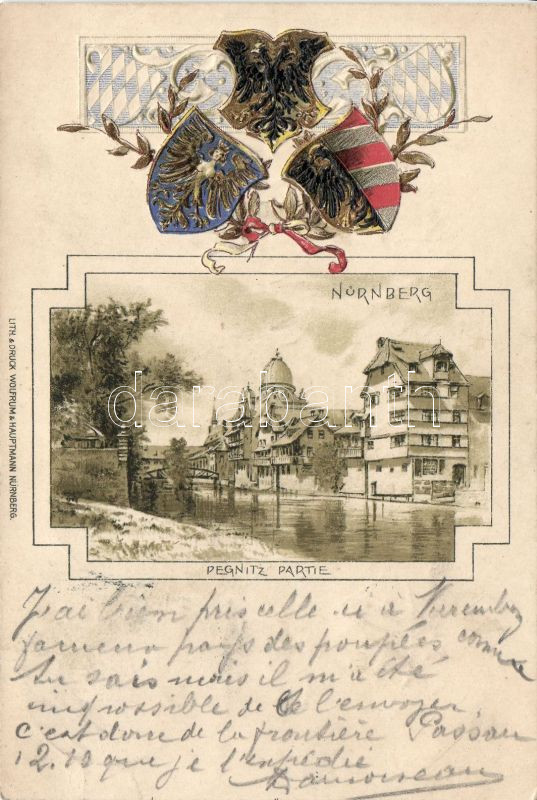 NÜRNBERG
LITH. & DRUCK WOLFRUM & HAUPTMANN NÜRNBERG.
darabanth
PEGNITZ PARTIE
J'ai bien pris celle ci à Nuremberg
fameux pays des poupées comme
tu sais mais il m'a été
impossible de te l'envoyer
c'est donc de la frontière Passau
12.10 que je l'expédie